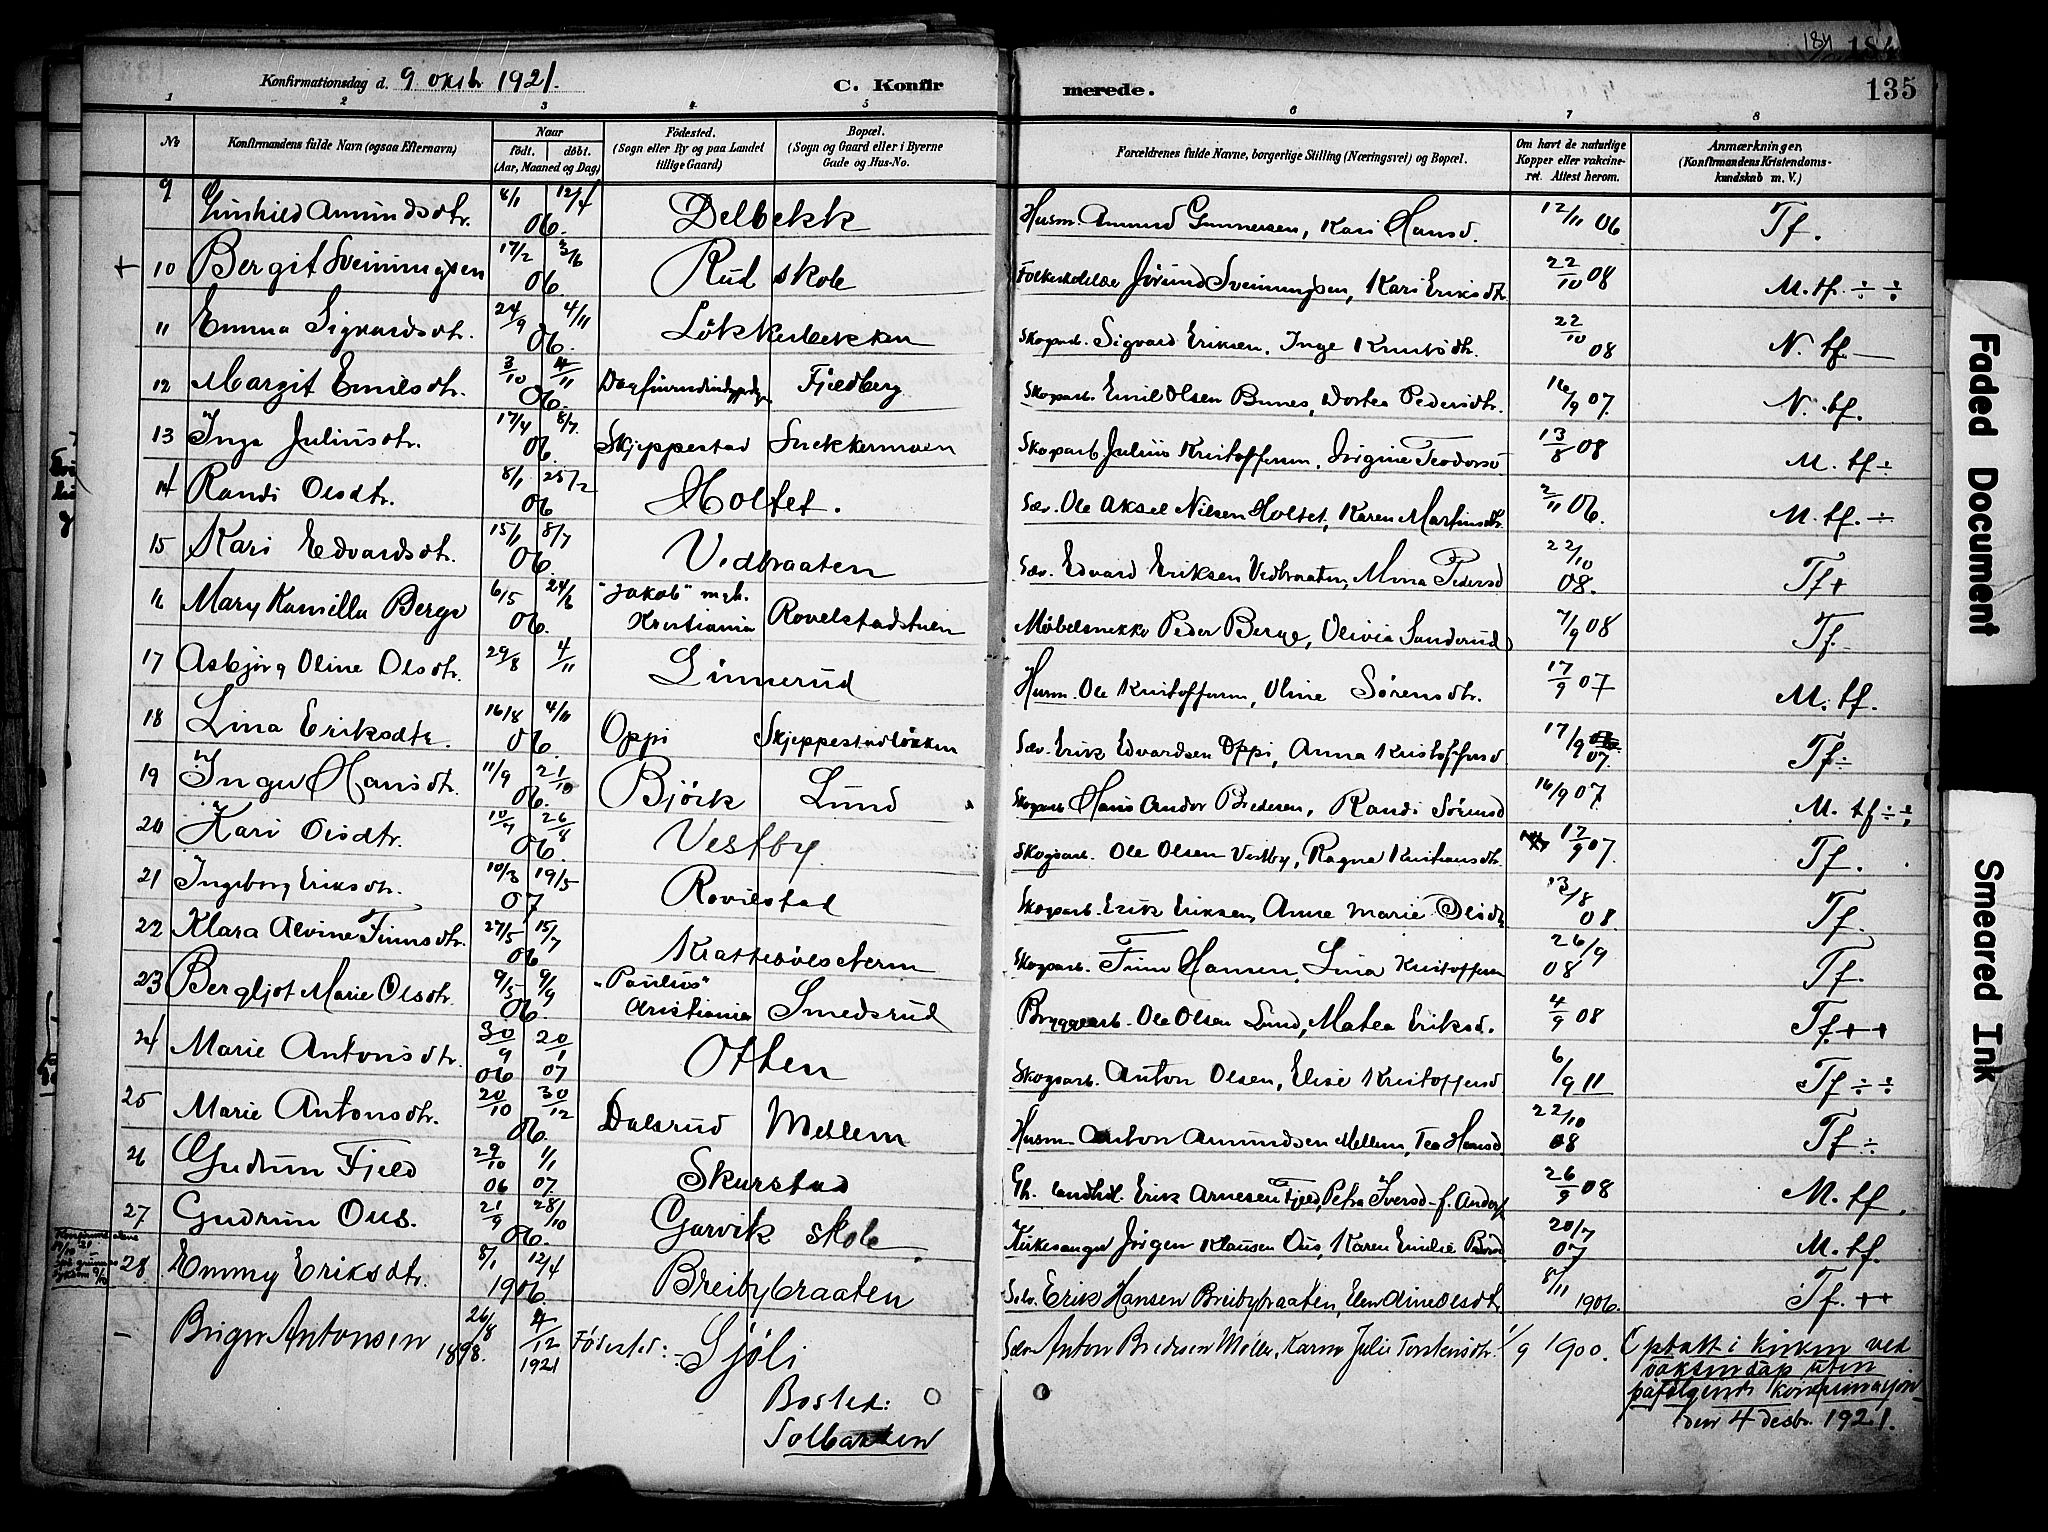 184 184
Konfirmationsdag d. 9 oktb. 1921. C. Konfirmerede. 135
1 2 3 4 5 6 7 8
No Konfirmandens fulde Navn (ogsaa Efternavn) Naar født. døbt. (Aar, Maaned og Dag) Födested. (Sogn eller By og paa Landet tillige Gaard) Bopæl. (Sogn og Gaard eller i Byerne Gade og Hus-No. Forældrenes fulde Navne, borgerlige Stilling (Næringsvei) og Bopæl. Om havt de naturlige Kopper eller vakcineret. Attest herom. Anmærkninger, (Konfirmandens Kristendomskundskab m. V.)
9 Gunhild Amundsdtr. 8/1 12/4 06. Delbekk Husm. Amund Gunnersen, Kari Hansd. 12/11 06 Tf.
+ 10 Bergit Sveinungsen 17/2 3/6 06. Rud skole Jørund Sveinungsen, Kari Eriksdtr 22/10 08 M. tf. ÷ ÷
11 Emma Sigvardsdtr. 24/9 4/11 06. Løkkerbekken Skogarb. Sigvard Eriksen, Inge Knutsdtr. 22/10 08 N. tf.
12 Margit Emilsdtr. 3/10 4/11 06. Fjeldberg Skogsarb. Emil Olsen Bunes, Dortea Pedersdtr. 16/9 07. N. tf.
13 Inga Juliusdtr. 17/4 8/7. 06. Skjeppestad Snekkermoen Skogsarb. Julius Kristoffersen, Jørgine Teodorsd 13/8 08 M. tf ÷
14 Randi Olsdtr. 8/1 25/2 06 Holtet. Sæv. Ole Aksel Nilsen Holtet, Karen Martinsdtr. 2/11 06. M. tf. ÷
15 Kari Edvardsdtr. 15/1 8/7 06. Vedbraaten Sæv. Edvard Eriksen Vedbraaten, Mina Pedersd 22/10 08. Tf +
16 Mary Kamilla Berge 6/5 24/6 06. "Jakob" mgh. Kristiania Rovelstadstuen Møbelsnekker Peder Berge, Olivia Sanderud 7/9 08 Tf.
17 Asbjørg Oline Olsdtr. 29/8 4/11 Linnerud Husm. Ole Kristoffersen, Oline Sørensdtr. 17/9 07 M. tf.
18 Lina Eriksdtr. 16/8 4/11 06. Oppi Skjeppestadløkken Sæv. Erik Edvardsen Oppi, Anna Kristoffersd 17/9 07. Tf ÷
19 Inger Hansdtr. 11/9 21/10 06. Bjørk Lund Skogsarb Hans Andor Pedersen, Randi Sørensd 16/9 07 M. tf ÷ ÷
20 Kari Olsdtr. 10/7 26/8 06. Vestby Skogsarb. Ole Olsen Vestby, Ragna Kristiansdtr. 17/9 07. Tf.
21 Ingeborg Eriksdtr. 10/3 19/5 07 Rovelstad Skogsarb. Erik Eriksen, Anne Marie Olsdtr 13/8 08. Tf.
22 Klara Alvine Finnsdtr. 27/5 15/7 06 Skogsarb. Finn Hansen, Lina Kristoffersen 26/9 08 Tf.
23 Bergljot Marie Olsdtr. 9/5 9/9 06. "Paulus" Kristiania Smedsrud Bryggearb. Ole Olsen Lund, Matea Eriksd. 4/9 08 Tf. + +
24 Marie Antonsdtr. 30/9 06 20/1 07 Otten Skogsarb. Anton Olsen, Elise Kristoffersd 6/9 11 Tf ÷ ÷
25 Marie Antonsdtr. 20/10 30/12 06. Dalsrud Mellem Husm. Anton Amundsen Mellem, Tea Hansd 22/10 08 Tf ÷
26 Gudrun Fjeld 29/10 06 1/1 07. Skurstad Gh. landhl. Erik Arnesen Fjeld, Petra Iversd. f. 26/9 08 M. tf
27 Gudrun Ous. 21/9 28/10 06. Garvik skole Kirkesanger Jørgen Klausen Ous, Karen Emilie 20/7 07 M. tf.
28 Emmy Eriksdtr. 8/1 12/4 1906. Breibybraaten Erik Hansen Breibybraaten, Elen Olsdtr 8/11 1906. Tf. + +
– Birger Antonsen 26/8 1898. 4/12 1921 Fødested: Sjøli Bosted: Solbakken Sæv. Anton Pedersen Møller, Karen Julie Torstensdtr. 1/9 1900. Optatt i kirken ved voksendåp uten påfølgende konfirmasjon den 4 desbr. 1921.
Faded Document
Smeared Ink